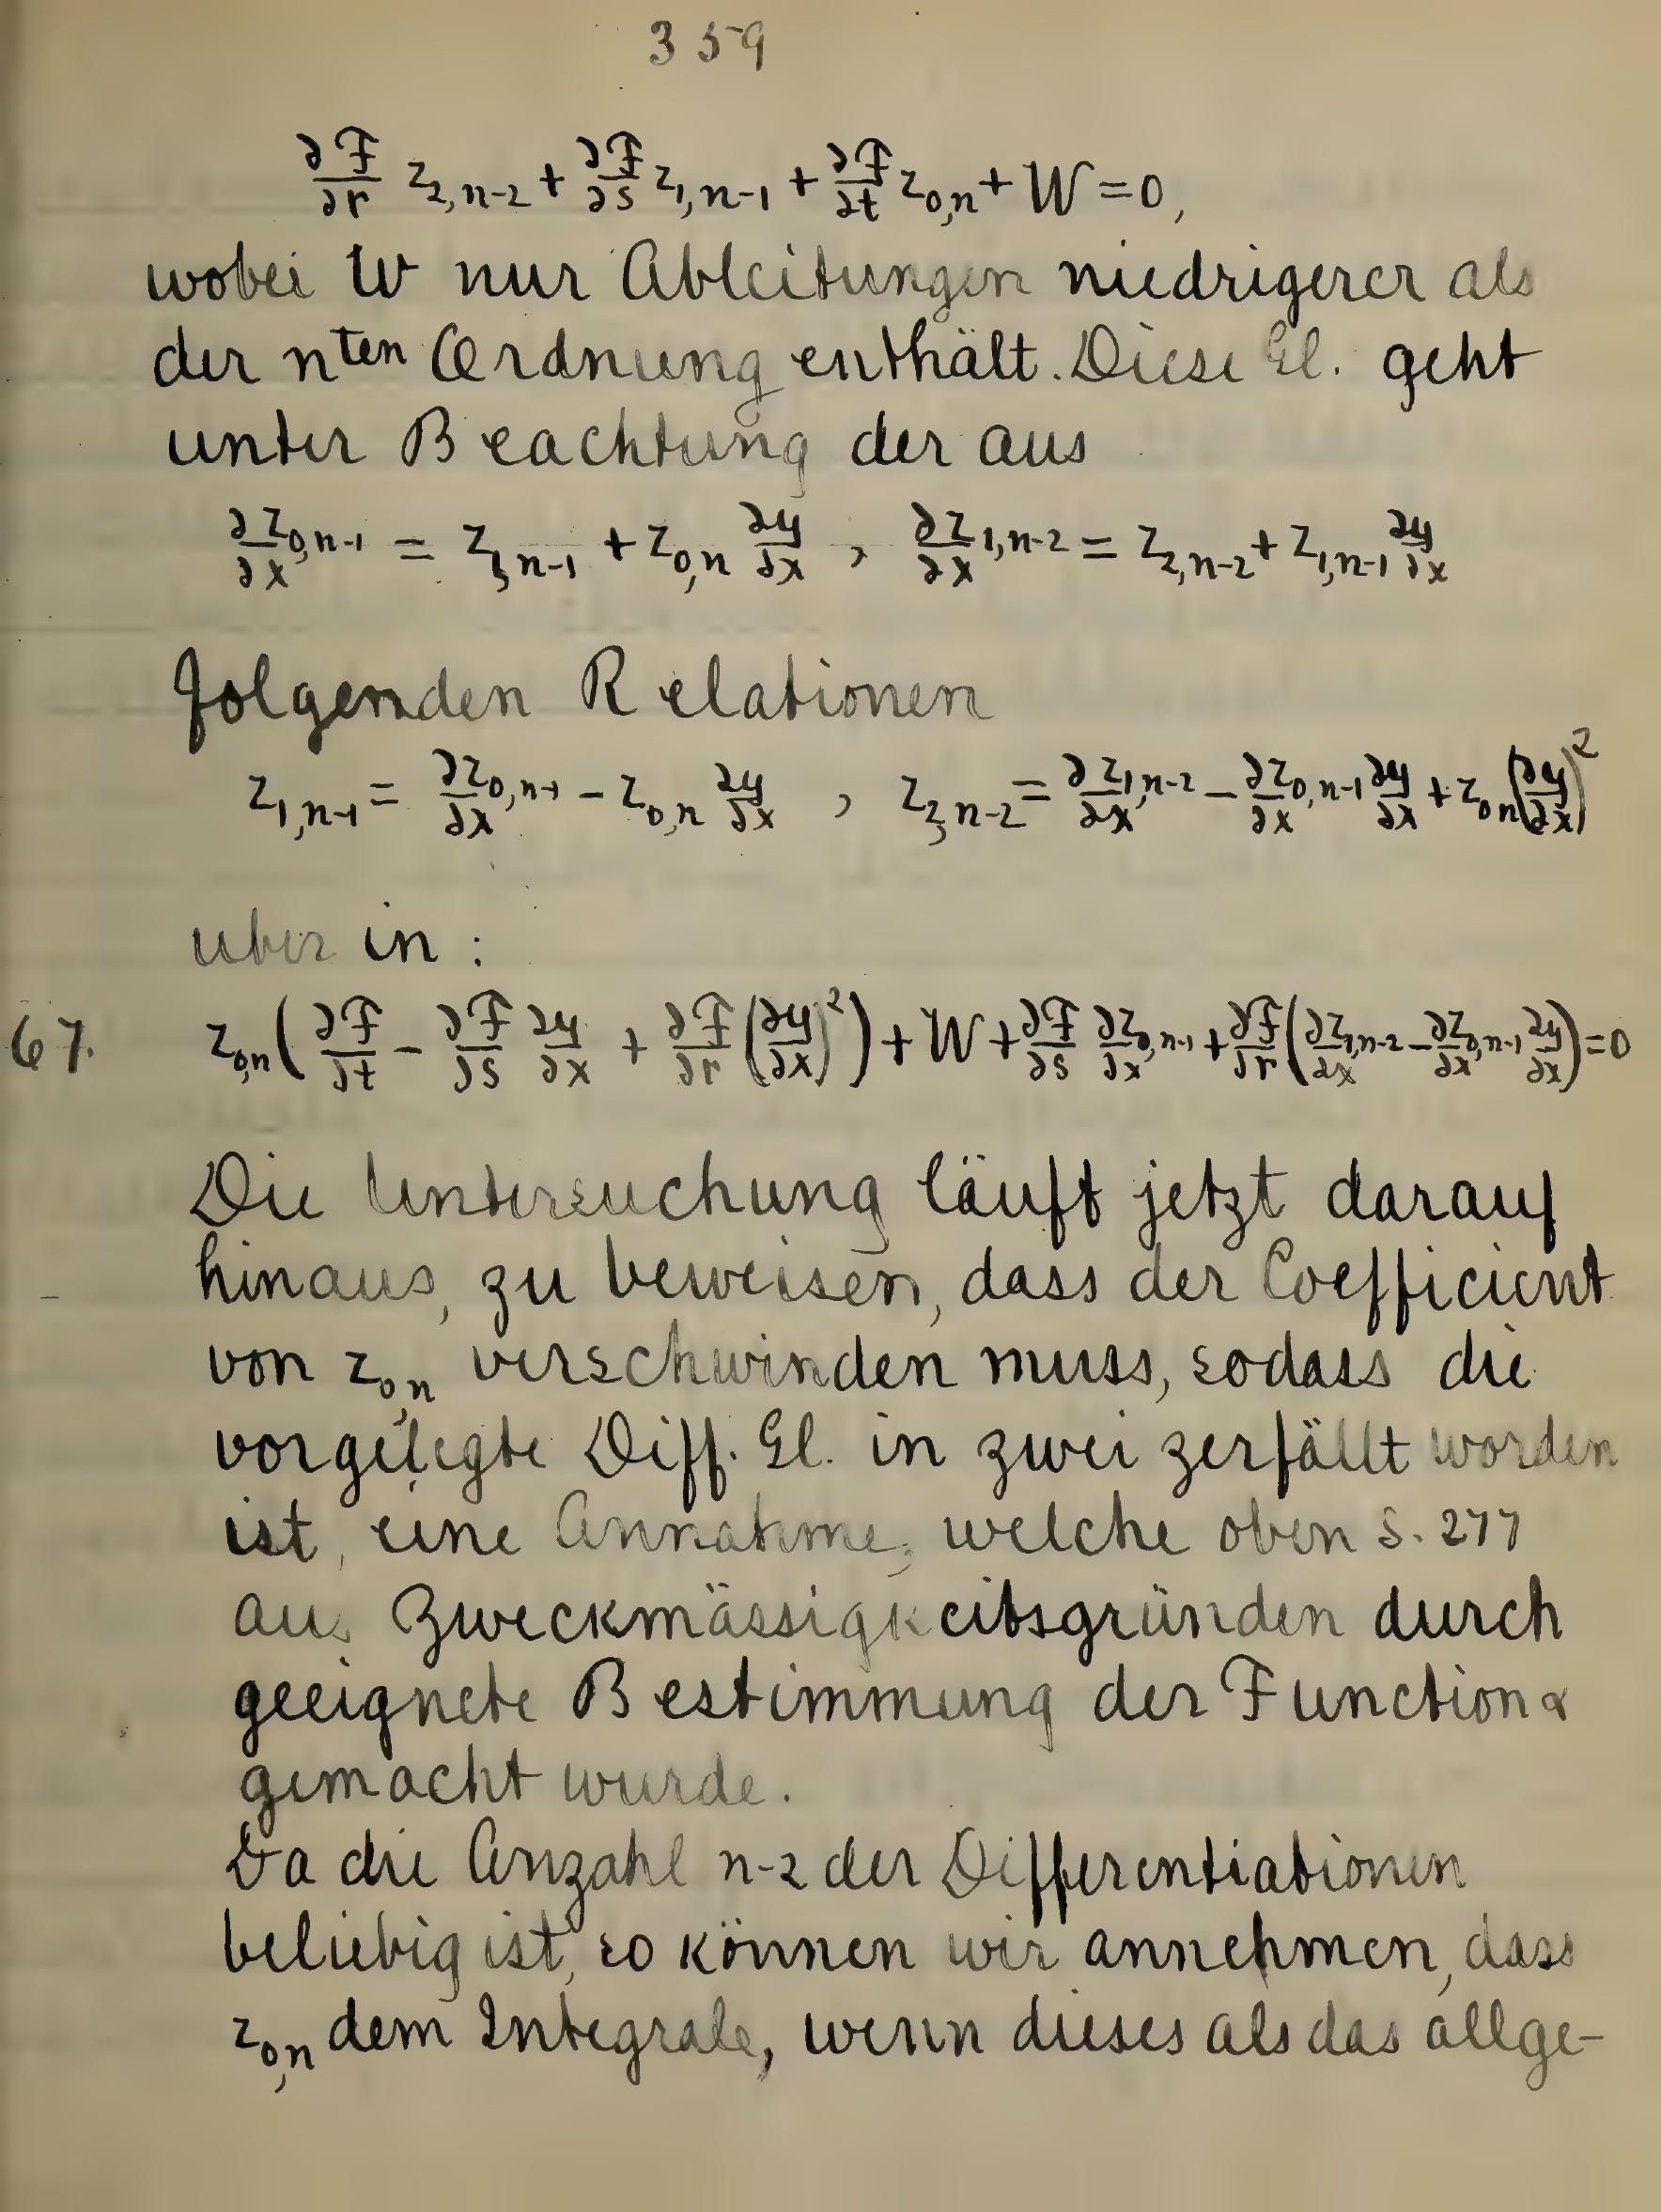 359
∂F/∂r z₂,ₙ₋₂ + ∂F/∂s z₁,ₙ₋₁ + ∂F/∂t z₀,ₙ + W = 0,
wobei W nur Ableitungen niedrigerer als
der nten Ordnung enthält. Diese Gl. geht
unter Beachtung der aus
∂z₀,ₙ₋₁/∂x = z₁,ₙ₋₁ + z₀,ₙ ∂y/∂x , ∂z₁,ₙ₋₂/∂x = z₂,ₙ₋₂ + z₁,ₙ₋₁ ∂y/∂x
folgenden Relationen
z₁,ₙ₋₁ = ∂z₀,ₙ₋₁/∂x - z₀,ₙ ∂y/∂x , z₂,ₙ₋₂ = ∂z₁,ₙ₋₂/∂x - ∂z₀,ₙ₋₁/∂x ∂y/∂x + z₀ₙ(∂y/∂x)²
uber in :
67. z₀,ₙ(∂F/∂t - ∂F/∂s ∂y/∂x + ∂F/∂r (∂y/∂x)²) + W + ∂F/∂s ∂z₀,ₙ₋₁/∂x + ∂F/∂r (∂z₁,ₙ₋₂/∂x - ∂z₀,ₙ₋₁/∂x ∂y/∂x) = 0
Die Untersuchung läuft jetzt darauf
hinaus, zu beweisen, dass der Coefficient
von z₀,ₙ verschwinden muss, sodass die
vorgelegte Diff. Gl. in zwei zerfällt worden
ist, eine Annahme, welche oben S. 277
aus Zweckmässigkeitsgründen durch
geeignete Bestimmung der Function α
gemacht wurde.
Da die Anzahl n-2 der Differentiationen
beliebig ist, so können wir annehmen, dass
z₀,ₙ dem Integrale, wenn dieses als das allge-